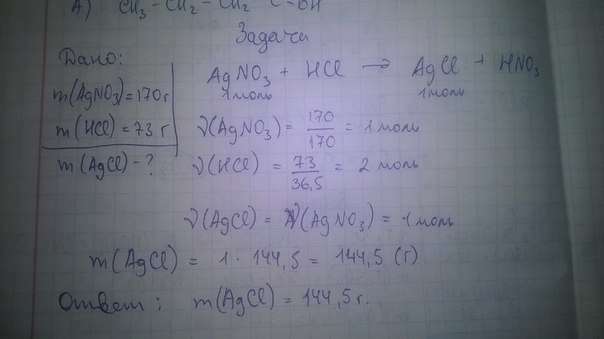 А) CH₃ - CH₂ - CH₂ C - OH
Задачи
Дано:
m(AgNO₃) = 170 г
m(HCl) = 73 г
m(AgCl) - ?
AgNO₃ + HCl → AgCl + HNO₃
1 моль 1 моль
ν(AgNO₃) = 170/170 = 1 моль
ν(HCl) = 73/36,5 = 2 моль
ν(AgCl) = ν(AgNO₃) = 1 моль
m(AgCl) = 1 · 144,5 = 144,5 (г)
Ответ: m(AgCl) = 144,5 г.